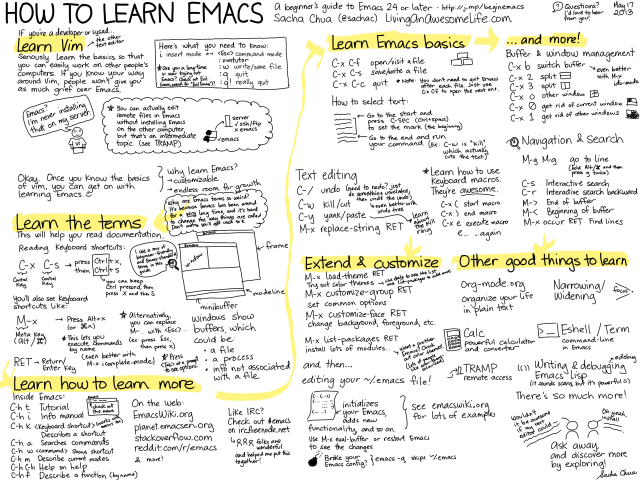 HOW TO LEARN EMACS
A beginner's guide to Emacs 24 or later - http://j.mp/beginemacs
Sacha Chua (@sachac) LivingAnAwesomeLife.com
Questions?
I'd love to hear from you!
May 17
2013
If you're a developer or sysad...
Learn Vim
the other text editor
Seriously. Learn the basics, so that
you can easily work on other people's
computers. If you know your way
around Vim, people won't give you
as much grief over Emacs.
Here's what you need to know:
i insert mode <Esc> command mode
:vimtutor
:w write/save file
:q quit
:q! really quit
Emacs?
I'm never installing
that on my server.
Vi
* You can actually edit
remote files in Emacs
without installing Emacs
on the other computer
but that's an intermediate
topic. (see TRAMP)
server
ssh/ftp
emacs
Okay. Once you know the basics
of vim, you can get on with
learning Emacs
Why learn Emacs?
→ customizable
→ endless room for growth
Why are Emacs terms so weird?
It's because Emacs has been around
for a very long time, and it's hard
to change the way things are called.
Don't worry, you'll get used to it.
Learn the terms
This will help you read documentation.
Reading keyboard shortcuts:
C-x C-s → press Ctrl+x,
then Ctrl+s
Control key
Control key
you can keep
Ctrl pressed, then
press X and then S
You'll also see keyboard
shortcuts like:
M-x → Press Alt+x
(or ⌘x)
Meta key
(alt/⌘)
* This lets you
execute commands
by name
* Alternatively,
you can replace
M-... with <Esc>...
(ex: press Esc,
then press x)
RET → Return/
Enter key
(even better with
M-x icomplete-mode)
* Press
window
frame
modeline
minibuffer
Windows show
buffers, which
could be:
• a file
• a process
• info not associated
with a file
Learn how to learn more
Inside Emacs:
C-h t Tutorial
C-h i Info manual
C-h k <Keyboard shortcut>
Describe a shortcut
C-h a Searches commands
C-h w <command> Shows shortcut
C-h m Describe current modes
C-h C-h Help on help
C-h f Describe a function (by name)
On the web:
EmacsWiki.org
planet.emacsen.org
stackoverflow.com
reddit.com/r/emacs
& more!
Like IRC?
Check out #emacs
on irc.freenode.net
folks are
wonderful
and helped me put this
together!
Learn Emacs basics
C-x C-f open/visit a file
C-x C-s save/write a file
C-x C-c quit
* Note: You don't need to quit Emacs
after each file. Just use
C-x C-f to open the next one.
How to select text:
→ Go to the start and
press C-SPC (ctrl+space)
to set the mark (the beginning)
→ Go to the end and run
your command (Ex: C-w is "kill",
which actually
cuts the text)
Text editing
C-/ undo (need to redo? just
do something unrelated,
then undo the undo)
C-w kill/cut
C-y yank/paste
M-x replace-string RET
even better with
undo-tree
* Learn how to use
Keyboard macros.
They're awesome.
C-x ( start macro
C-x ) end macro
C-x e execute macro
e... again
...and more!
Buffer & window management
C-x b switch buffer
C-x 2 split
C-x 3 split
C-x o other window
C-x 0 get rid of current window
C-x 1 get rid of other windows
even better
with M-x
ido-mode
Navigation & search
M-g M-g go to line
(keep Alt/⌘ and then
press g twice)
C-s Interactive search
C-r Interactive search backward
M-> End of buffer
M-< Beginning of buffer
M-x occur RET Find lines
Extend & customize
M-x load-theme RET
Try out color themes
M-x customize-group RET
set common options
M-x customize-face RET
change background, foreground, etc.
M-x list-packages RET
install lots of modules...
and then...
editing your ~/.emacs file!
initializes
your Emacs,
adds new
functionality, and so on.
see emacswiki.org
for lots of examples
Use M-x eval-buffer or restart Emacs
to see the changes
Broke your
Emacs config?
emacs -q skips ~/.emacs
Other good things to learn
Org-mode.org
organize your life
in plain text
Narrowing/
Widening
focus.
Calc
powerful calculator
and converter
Eshell / Term
command-line
in Emacs
TRAMP
remote access
Writing & debugging
Emacs Lisp
(it sounds scary, but it's powerful)
There's so much more!
Wouldn't it
be awesome
if my text
editor could...
Oh yeah,
install
Ask away,
and discover
more by
exploring!
Sacha Chua